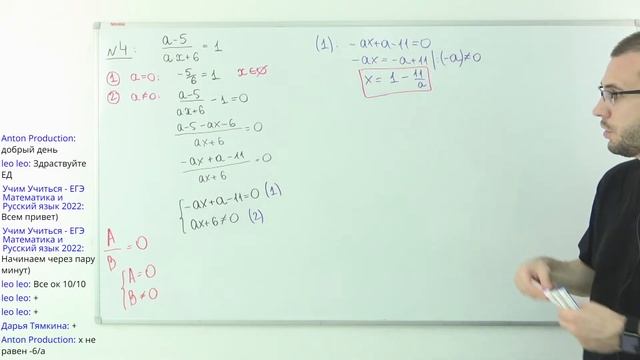 №4: (a-5)/(ax+6) = 1
① a=0: -5/6 = 1 x∈∅
② a≠0: (a-5)/(ax+6) - 1 = 0
(a-5-ax-6)/(ax+6) = 0
(-ax+a-11)/(ax+6) = 0
{ -ax+a-11=0 (1)
ax+6≠0 (2)
A/B = 0
{ A=0
B≠0
(1). -ax+a-11=0
-ax = -a+11 |:(-a)≠0
x = 1 - 11/a
Anton Production:
добрый день
leo leo: Здраствуйте
ЕД
Учим Учиться - ЕГЭ
Математика и
Русский язык 2022:
Всем привет)
Учим Учиться - ЕГЭ
Математика и
Русский язык 2022:
Начинаем через пару
минут)
leo leo: Все ок 10/10
leo leo: +
leo leo: +
Дарья Тямкина: +
Anton Production: х не
равен -6/а